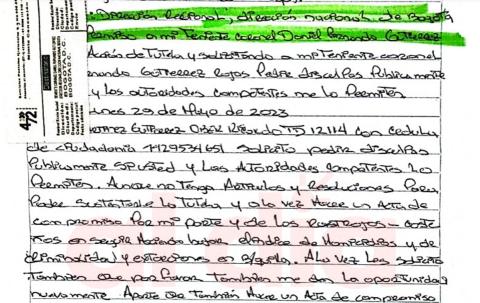 Dirección Regional, dirección nacional de Bogotá
Permiso a mi Teniente coronel Daniel Fernando Gutierrez
Acción de Tutela y solicitando a mi Teniente coronel
nando Gutierrez Rojas Pedir disculpas Publicamente
y las autoridades competentes me lo Permiten
unes 29 de Mayo de 2023
Gutierrez Ricardo TD 12114 con cedula
de ciudadania 1129534651 solicito pedir disculpas
Publicamente si usted y las Autoridades Competentes lo
Permiten. Anexe no Tengo Articulos y Resoluciones Para
Poder sustentar la Tutela y a la vez Hacer un Acta de
compromiso Por mi Parte y de los Rastrojos - coste
ños en seguir Haciendo bajar el indice de Homicidios y de
criminalidad y extorciones en B/quilla. A lo Vez les solicito
Tambien que por favor Tambien me den la oportunidad
nuevamente Aparte de También Hacer un Acta de compromiso
472